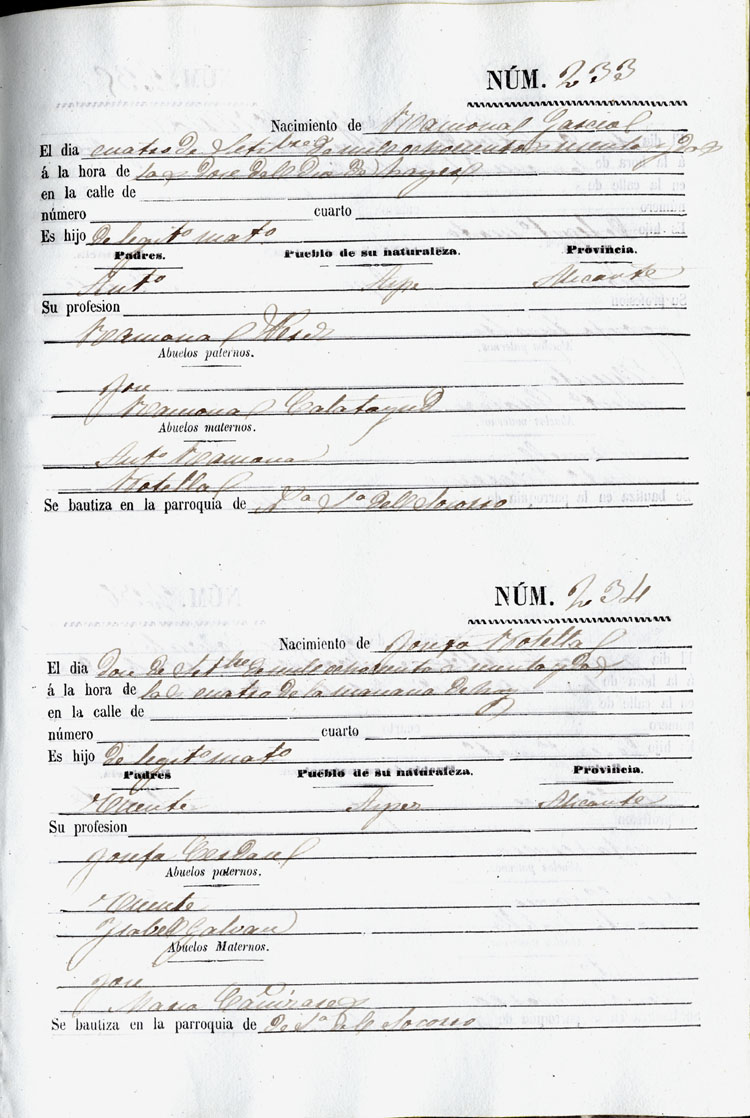 NÚM. 233
Nacimiento de Ramona Garcia
El dia cuatro de Setibre de mil ochocientos
á la hora de las doce del dia de hayer
en la calle de
número cuarto
Es hijo de legito mato
Padres. Pueblo de su naturaleza. Provincia.
Anto Aspe Alicante
Su profesion
Ramona
Abuelos paternos.
Jose
Ramona Calatayud
Abuelos maternos.
Anto Ramona
Botella
Se bautiza en la parroquia de Na Sa del Socorro
NÚM. 234
Nacimiento de Botella
El dia doce de Setbre de mil ochocientos
á la hora de las cuatro de la mañana de hoy
en la calle de
número cuarto
Es hijo de legito mato
Padres Pueblo de su naturaleza. Provincia.
Vicente Aspe Alicante
Su profesion
Josefa Cerdan
Abuelos paternos.
Vicente
Ysabel Galvan
Abuelos Maternos.
Jose
Maria Cañizares
Se bautiza en la parroquia de de Sa del Socorro